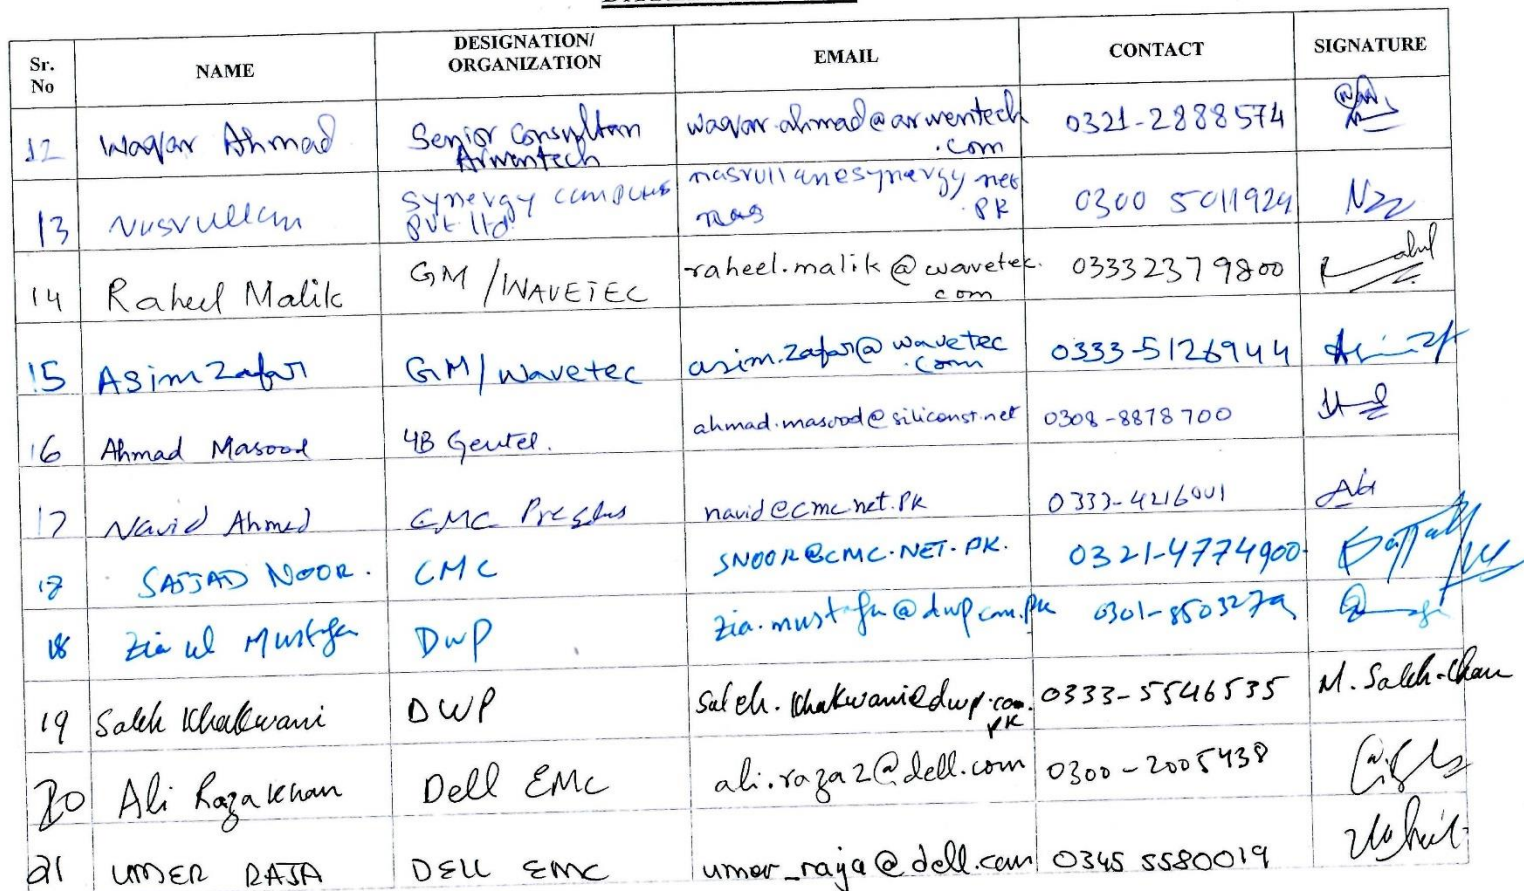 Sr. No NAME DESIGNATION/ ORGANIZATION EMAIL CONTACT SIGNATURE
12 Waqar Ahmad Senior Consultan Arwentech waqar.ahmad@arwentech.com 0321-2888574
13 Nasrullah Synergy Computers Pvt Ltd 0300 5011924
14 Raheel Malik GM/WAVETEC raheel.malik@wavetec.com 03332379800
15 Asim Zafar GM/Wavetec asim.zafar@wavetec.com 0333-5126944
16 Ahmad Masood 4B Gentel. ahmad.masood@siliconst.net 0308-8878700
17 Navid Ahmed CMC navid@cmc.net.pk 0333-4216001
SAJJAD NOOR. CMC SNOOR@CMC.NET.PK. 0321-4774900
18 Zia ul Mustafa DWP zia.mustafa@dwp.com.pk
19 Saleh Khakwani DWP Saleh.Khakwani@dwp.com.pk 0333-5546535
20 Ali Raza Khan Dell EMC ali.raza2@dell.com 0300-2005438
21 UMER RAJA DELL EMC umer_raja@dell.com 0345 5580019